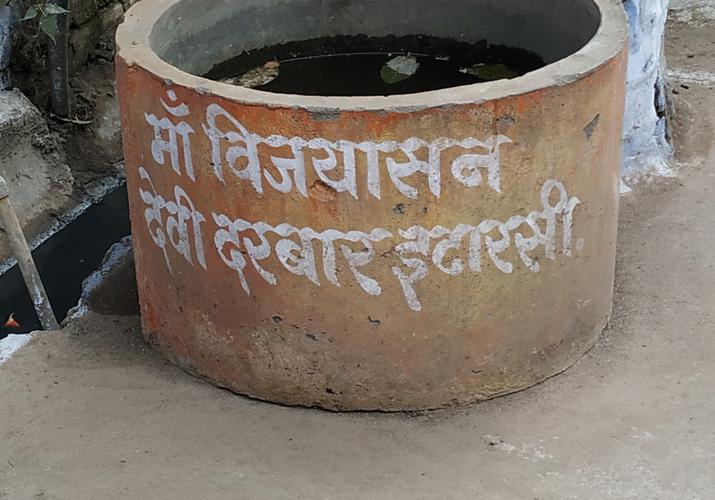 माँ विजयासन
देवी दरबार इटारसी.